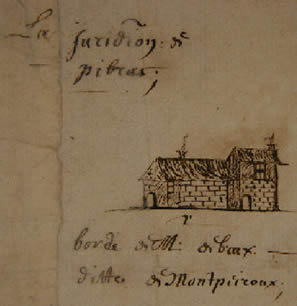 La juridion de
pibrac;
1
borde de M. de brax
ditte de Montpeiroux;